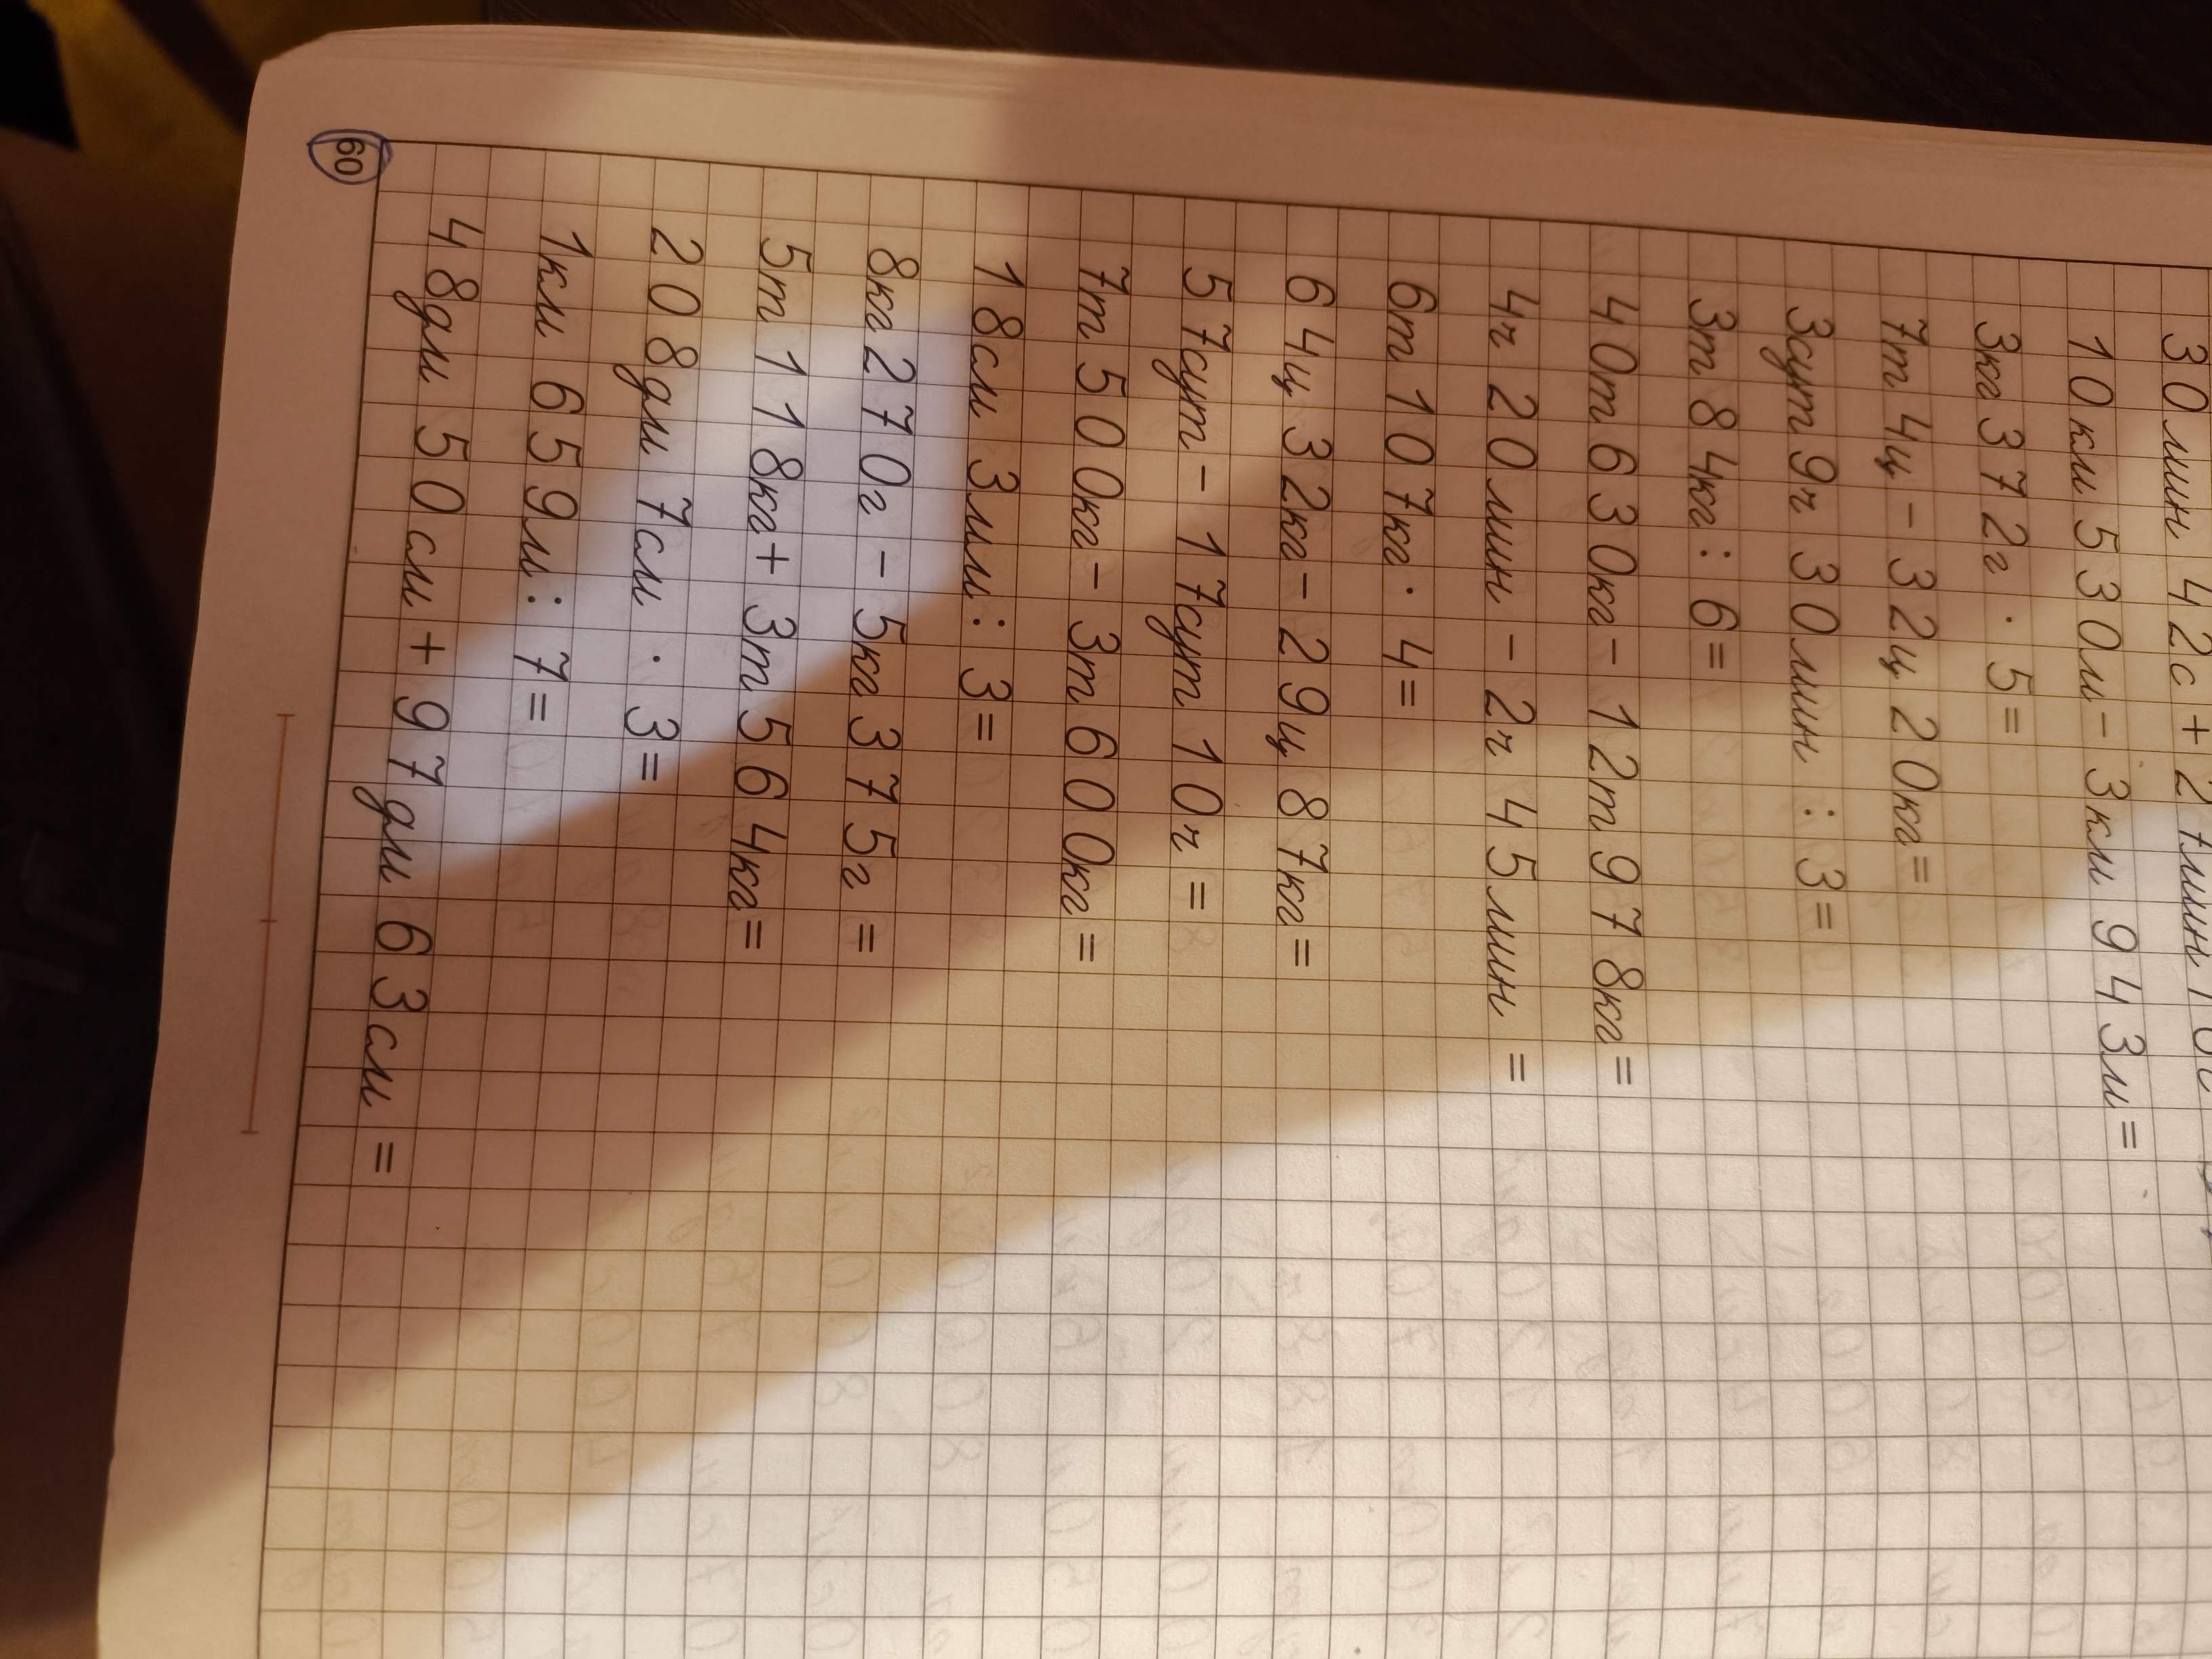 30мин 42с + 27мин
10км 530м - 3км 943м =
3кг 372г · 5 =
7т 4ц - 32ц 20кг =
3сут 9ч 30мин : 3 =
3т 84кг : 6 =
40т 630кг - 12т 978кг =
4ч 20мин - 2ч 45мин =
6т 107кг · 4 =
64ц 32кг - 29ц 87кг =
57сут - 17сут 10ч =
7т 500кг - 3т 600кг =
18см 3мм : 3 =
8кг 270г - 5кг 375г =
5т 118кг + 3т 564кг =
208дм 7см · 3 =
1км 659м : 7 =
48дм 50см + 97дм 63см =
60